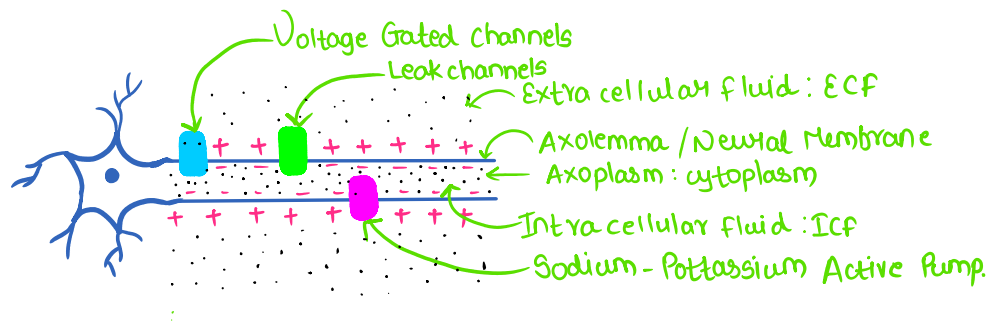 Voltage Gated channels
Leak channels
Extra cellular fluid : ECF
Axolemma / Neural Membrane
Axoplasm : cytoplasm
Intra cellular fluid : ICF
Sodium - Pottassium Active Pump.